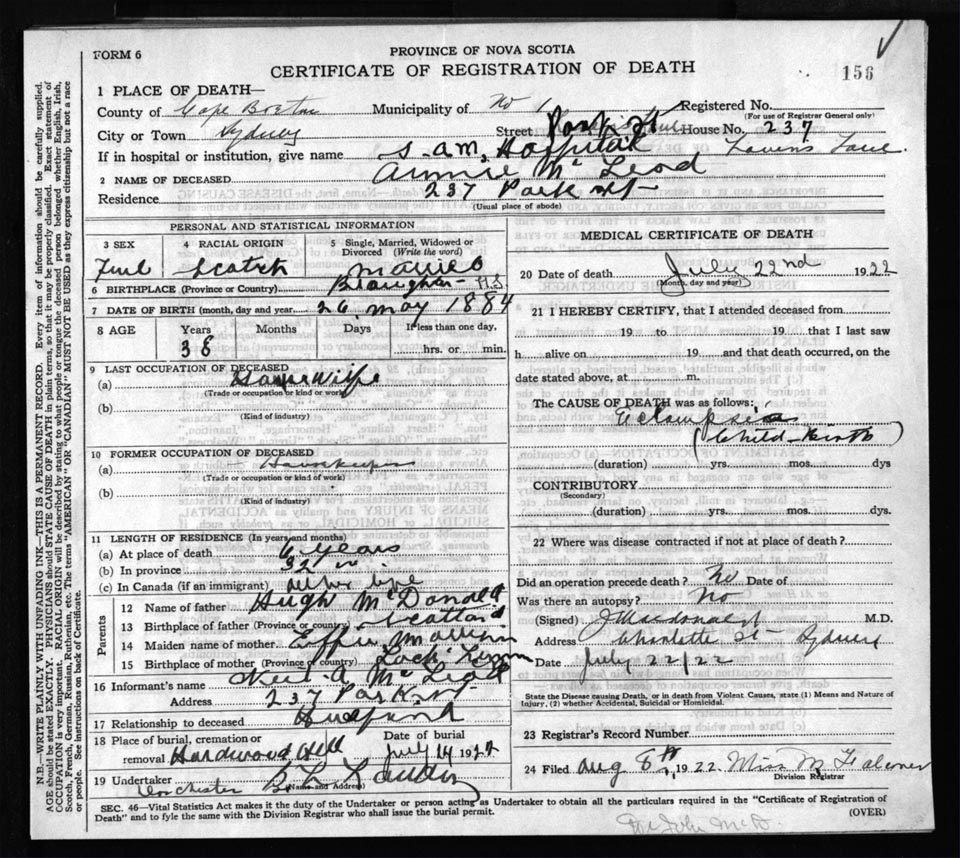 FORM 6
PROVINCE OF NOVA SCOTIA
CERTIFICATE OF REGISTRATION OF DEATH
156
1 PLACE OF DEATH—
County of Cape Breton Municipality of No 1 Registered No.
(For use of Registrar General only)
City or Town Sydney Street Park St House No. 237
If in hospital or institution, give name S. am. Hospital
2 NAME OF DECEASED Annie McLeod
Residence 237 Park St
(Usual place of abode)
PERSONAL AND STATISTICAL INFORMATION
3 SEX 4 RACIAL ORIGIN 5 Single, Married, Widowed or Divorced (Write the word)
Scotch Married
6 BIRTHPLACE (Province or Country)
7 DATE OF BIRTH (month, day and year) 26 May 1884
8 AGE Years Months Days If less than one day,
38 hrs. or min.
9 LAST OCCUPATION OF DECEASED
(a) Housewife
(Trade or occupation or kind or work)
(b)
(Kind of industry)
10 FORMER OCCUPATION OF DECEASED
(a) Housekeeper
(Trade or occupation or kind of work)
(b)
(Kind of industry)
11 LENGTH OF RESIDENCE (In years and months)
(a) At place of death 6 years
(b) In province 32
(c) In Canada (if an immigrant) all her life
Parents
12 Name of father Hugh McDonald
13 Birthplace of father (Province or country) Scotland
14 Maiden name of mother Effie
15 Birthplace of mother (Province or country) Loch
16 Informant's name A McLeod
Address 237 Park St
17 Relationship to deceased Husband
18 Place of burial, cremation or removal Hardwood Hill Date of burial July 24 1922
19 Undertaker
(Name and Address)
MEDICAL CERTIFICATE OF DEATH
20 Date of death July 22nd 1922
(Month, day and year)
21 I HEREBY CERTIFY, that I attended deceased from
19 to 19 that I last saw
h alive on 19 and that death occurred, on the
date stated above, at m.
The CAUSE OF DEATH was as follows:
Eclampsia
(Child-Birth)
(duration) yrs. mos. dys
CONTRIBUTORY
(Secondary)
(duration) yrs. mos. dys.
22 Where was disease contracted if not at place of death?
Did an operation precede death? No Date of
Was there an autopsy? No
(Signed) J Macdonald M.D.
Address Charlotte St - Sydney
Date July 22/22
State the Disease causing Death, or in death from Violent Causes, state (1) Means and Nature of
Injury, (2) whether Accidental, Suicidal or Homicidal.
23 Registrar's Record Number
24 Filed Aug 8th, 1922 Miss M Falconer
Division Registrar
SEC. 46—Vital Statistics Act makes it the duty of the Undertaker or person acting as Undertaker to obtain all the particulars required in the "Certificate of Registration of
Death" and to fyle the same with the Division Registrar who shall issue the burial permit.
(OVER)
N.B.—WRITE PLAINLY WITH UNFADING INK—THIS IS A PERMANENT RECORD. Every item of information should be carefully supplied.
AGE should be stated EXACTLY. PHYSICIANS should STATE CAUSE OF DEATH in plain terms, so that it may be properly classified. Exact statement of
OCCUPATION is very important. RACIAL ORIGIN will be described by stating to what people or tongue the deceased person belonged whether English, Irish,
Scotch, French, German, Russian, Ruthenian, etc. The terms "AMERICAN" OR "CANADIAN" MUST NOT BE USED as they express citizenship but not a race
or people. See instructions on back of Certificate.